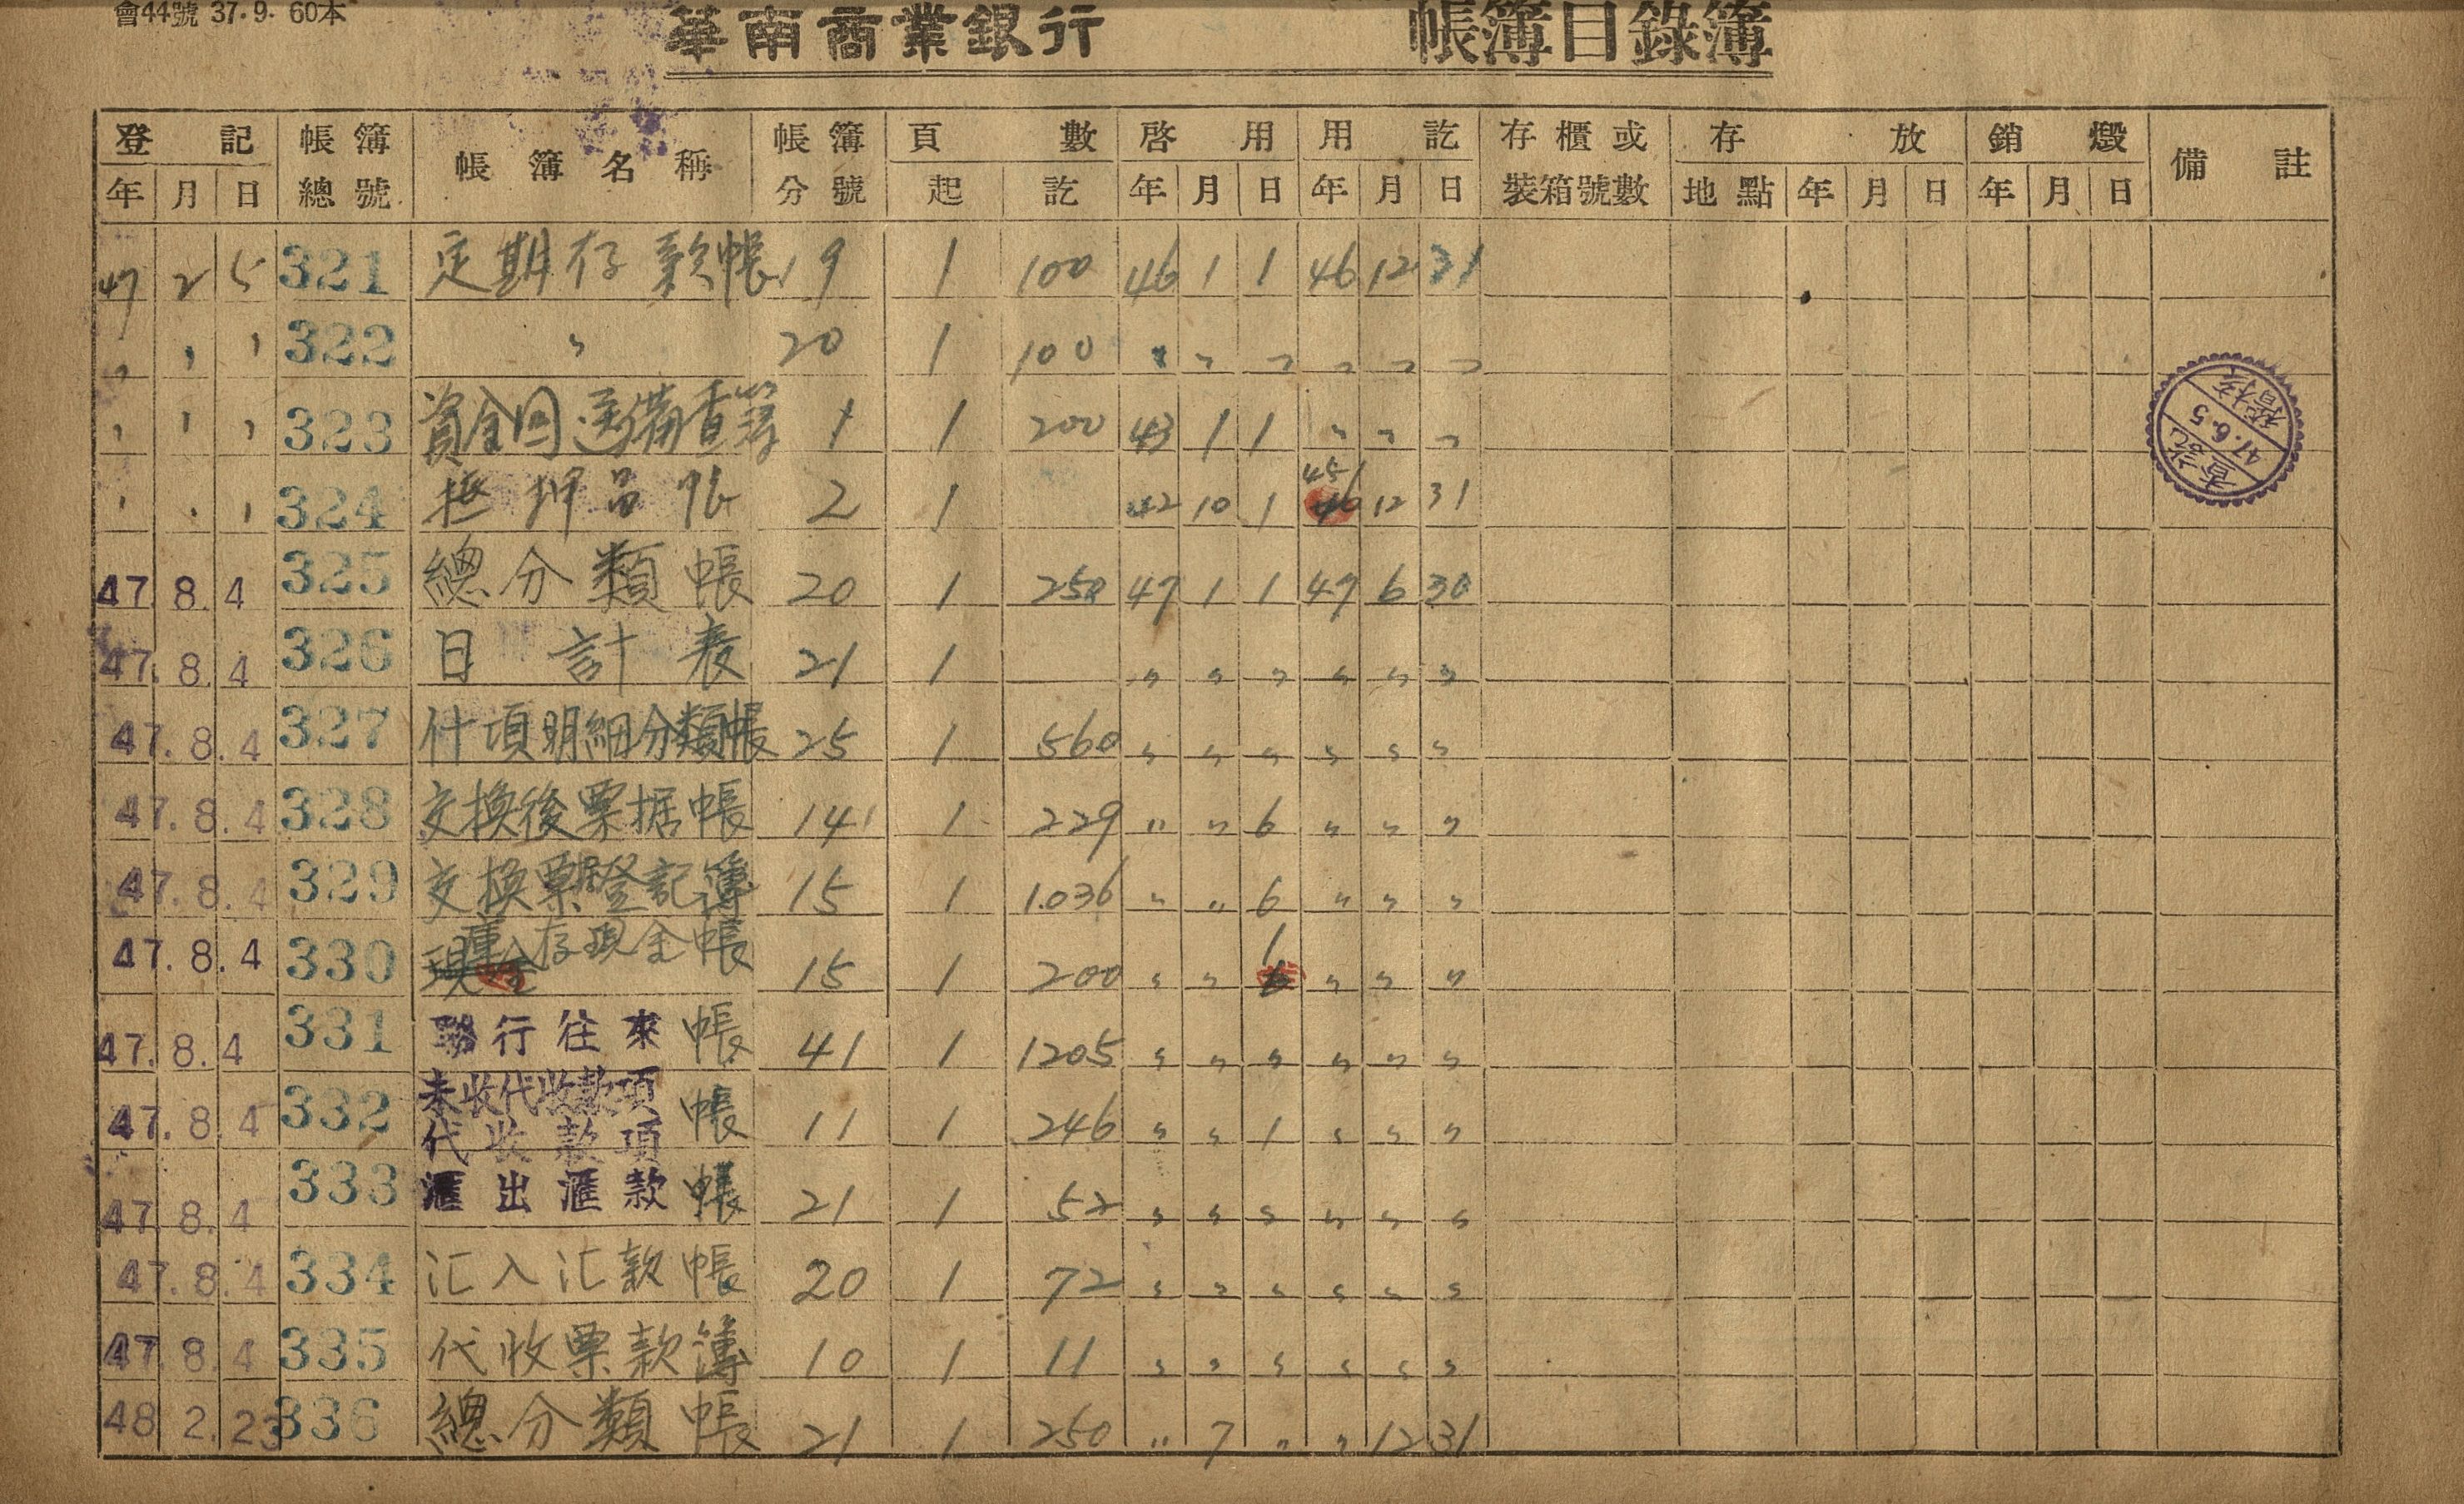 會44號 37.9. 60本
華南商業銀行 帳簿目錄簿
登記 帳簿 帳簿名稱 帳簿 頁數 啓用 用訖 存櫃或 存放 銷燬 備註
年 月 日 總號 分號 起 訖 年 月 日 年 月 日 裝箱號數 地點 年 月 日 年 月 日
47 2 5 321 定期存款帳 19 1 100 46 1 1 46 12 31
〃 〃 〃 322 〃 20 1 100 〃 〃 〃 〃 〃 〃
〃 〃 〃 323 資金回送備查簿 1 1 200 43 1 1 〃 〃 〃
〃 〃 〃 324 押品帳 2 1 42 10 1 45 46 12 31
查訖 47.6.5 稽核
47.8.4 325 總分類帳 20 1 250 47 1 1 47 6 30
47.8.4 326 日計表 21 1 〃 〃 〃 〃 〃 〃
47.8.4 327 什項明細分類帳 25 1 560 〃 〃 〃 〃 〃 〃
47.8.4 328 交換後票据帳 14 1 229 〃 〃 6 〃 〃 〃
47.8.4 329 交換票据登記簿 15 1 1.036 〃 〃 6 〃 〃 〃
47.8.4 330 現金 庫存現金帳 15 1 200 〃 〃 1 6 〃 〃 〃
47.8.4 331 聯行往來帳 41 1 1205 〃 〃 〃 〃 〃 〃
47.8.4 332 未收代收款項 代收款項 帳 11 1 246 〃 〃 1 〃 〃 〃
47.8.4 333 滙出滙款帳 21 1 52 〃 〃 〃 〃 〃 〃
47.8.4 334 汇入汇款帳 20 1 72 〃 〃 〃 〃 〃 〃
47.8.4 335 代收票款簿 10 1 11 〃 〃 〃 〃 〃 〃
48 2.23 336 總分類帳 21 1 250 〃 7 〃 〃 12 31